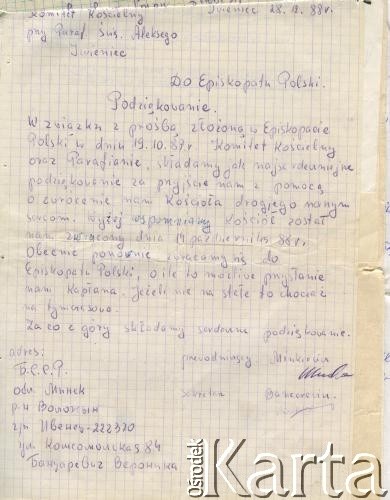 Komitet Kościelny Iwieniec 28.12.88r.
przy Paraf. Św. Aleksego
Iwieniec
Do Episkopatu Polski.
Podziękowanie.
W związku z prośbą złożoną w Episkopacie
Polski w dniu 19.10.87r. Komitet Kościelny
oraz Parafianie, składamy jak najserdeczniejsze
podziękowanie za przyjście nam z pomocą
o zwrócenie nam Kościoła drogiego naszym
sercom. Wyżej wspomniany Kościół został
nam zwrócony dnia 14 października 88r.
Obecnie ponownie zwracamy się do
Episkopatu Polski, o ile to możliwe przysłanie
nam Kapłana. Jeżeli nie na stałe to chociaż
na tymczasowo.
Za co z góry składamy serdeczne podziękowanie.
adres: przewodniczący
Б.С.С.Р. sekretarz
обл. Минск
р-н Воложын
г/п Ивенец-222370
ул. Комсомольская 84
Банцаревич Вероника
Ośrodek
Karta